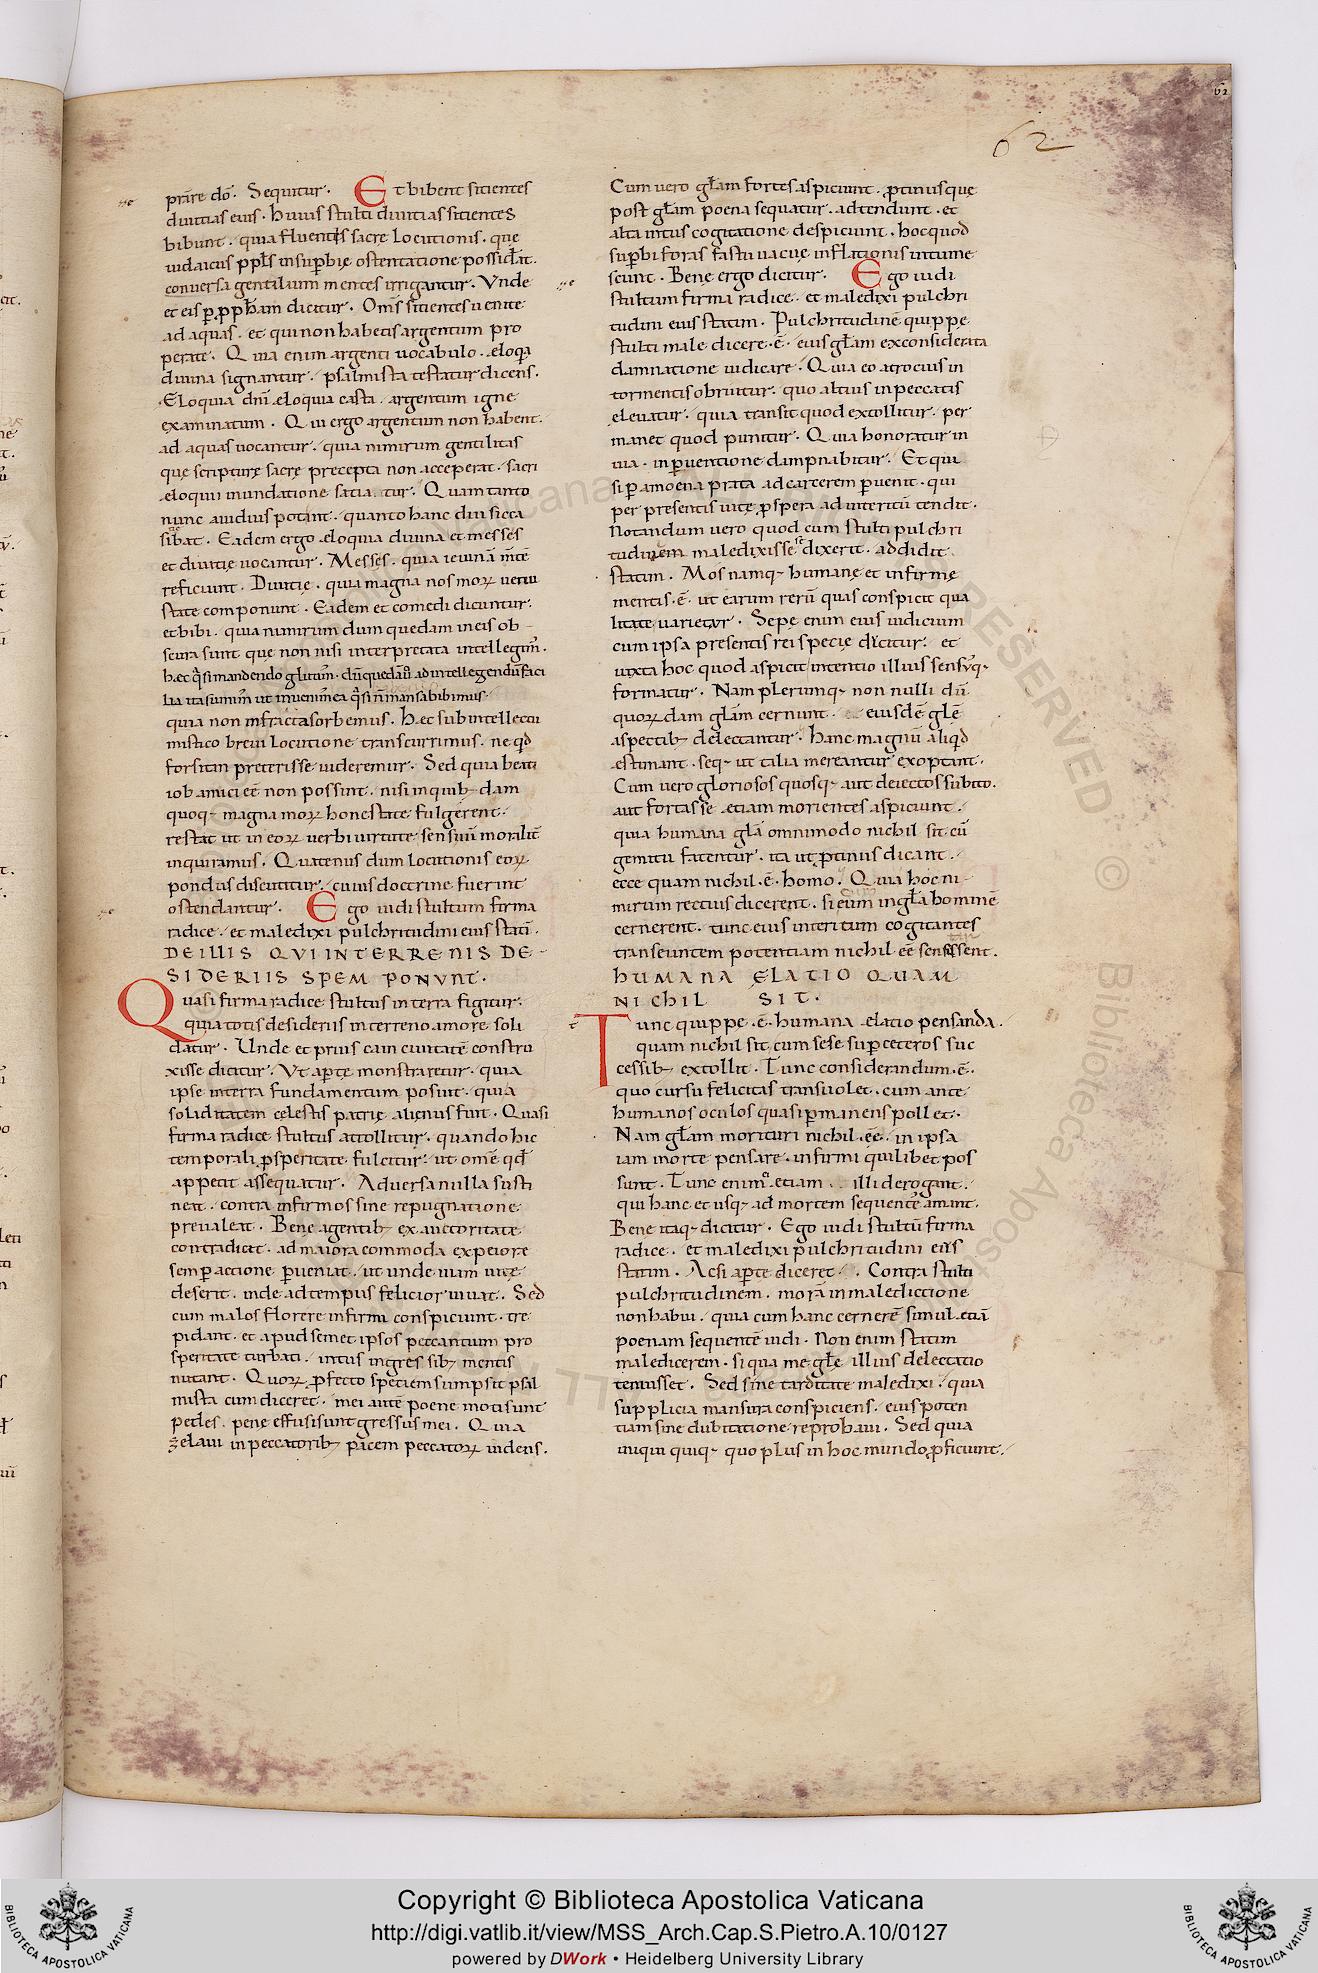 62
62
prāre dō. Sequitur. Et bibent sitientes
divitias eius. Huius stulti divitias sitientes
bibunt. quia fluentis sacre locutionis. quę
iudaicus ppłs insuperbię ostentatione possidat.
conversa gentilium mentes irrigantur. Unde
et eis per pphetam dicitur. Omīs sitientes venite
ad aquas. et qui non habetis argentum pro
perate. Quia enim argenti vocabulo. eloqa
divina signantur. psalmista testatur dicens.
Eloquia dñi eloquia casta. argentum igne
examinatum. Qui ergo argentum non habent.
ad aquas vocantur. quia nimirum gentilitas
que scripturę sacrę precepta non acceperat. sacri
eloquii inundatione satiatur. Quam tanto
nunc avidius potant. quanto hanc diu sicca
sitiebat. Eadem ergo eloquia divina et messes
et divitię vocantur. Messes. quia ieiunā mtē
reficiunt. Divitię. quia magna nos moꝝ venu
state componunt. Eadem et comedi dicuntur.
et bibi. quia nimirum dum quedam in eis ob
scura sunt que non nisi interpretata intellegim.
hec qsi mandendo glutim. dū quedā v ad intellegendū faci
lia ita sumim ut invenim ea qsi ñ mansa bibimus.
quia non infracta sorbemus. Hęc sub intellectu
mistico brevi locutione transcurrimus. ne qd
forsitan preterisse videremur. Sed quia beati
iob amici eē non possint. nisi in quibdam
quoq magna moꝝ honestate fulgerent.
restat ut in eoꝝ verbi virtute sensum moralit
inquiramus. Quatenus dum locutionis eoꝝ
pondus discutitur. cuius doctrine fuerint
ostendantur. Ego vidi stultum firma
radice. et maledixi pulchritudini eius statī.
DE ILLIS QUI IN TERRENIS DE
SIDERIIS SPEM PONUNT.
Quasi firma radice stultus in terra figitur.
quia totis desideriis in terreno amore soli
datur. Unde et prius cain civitatē constru
xisse dicitur. Ut aperte monstraretur. quia
ipse in terra fundamentum posuit. quia
soliditatem cęlestis patrię alienus fuit. Quasi
firma radice stultus attollitur. quando hic
temporali prosperitate fulcitur. ut omē qd
appetit assequatur. Adversa nulla susti
neat. contra infirmos sine repugnatione
prevaleat. Bene agentib ex auctoritate
contradicat. ad maiora commoda ex peiore
semper actione perveniat. ut unde viam vitę
deserit. inde ad tempus felicior vivat. Sed
cum malos florere infirmi conspiciunt. tre
pidant. et apud semet ipsos peccantum pro
speritate turbati. intus in gressib mentis
nutant. Quoꝝ profecto speciem sumpsit psal
mista cum diceret. mei autē pene moti sunt
pedes. pene effusi sunt gressus mei. Quia
zelavi in peccatorib pacem peccatoꝝ videns.
Cum vero głam fortes aspiciunt. protinusquę
post głam poena sequatur. adtendunt. et
alta intus cogitatione despiciunt. hoc quod
superbi foras fastu vacuę inflationis intume
scunt. Bene ergo dicitur. Ego vidi
stultum firma radice. et maledixi pulchri
tudini eius statim. Pulchritudine quippe
stulti maledicere. ē. eius głam ex considerata
damnatione iudicare. Quia eo atrocius in
tormentis obruitur. quo altius in peccatis
elevatur. quia transit quod extollitur. per
manet quod punitur. Quia honoratur in
via. in perventione dampnabitur. Et qui
si per amoena prata ad carcerem pervenit. qui
per presentis vitę prospera ad interitū tendit.
Notandum vero quod cum stulti pulchri
tudinem maledixisse se dixerit. addidit
statim. Mos namq humanę et infirmę
mentis. ē. ut earum rerū quas conspicit qua
litate varietur. Sępe enim eius iudicium
cum ipsa presentis rei specie dicitur. et
iuxta hoc quod aspicit intentio illius sensusq
formatur. Nam plerumq non nulli dū
quorꝝdam głam cernunt. eiusdē głę
aspectib delectantur. hanc magnū aliqd
estimant. seq ut talia mereantur exoptant.
Cum vero gloriosos quosq aut deiectos subito.
aut fortasse etiam morientes aspiciunt.
quia humana gła omnimodo nichil sit cū
gemitu fatentur. ita ut protinus dicant.
ecce quam nichil. ē. homo. Quia hoc ni
mirum rectius dicerent. si eum in głā hominē
cernerent. tunc eius interitum cogitantes
transeuntem potentiam nichil eē sensissent.
HUMANA ELATIO QUAM
NICHIL SIT.
Tunc quippe. ē. humana elatio pensanda.
quam nichil sit cum sese super ceteros suc
cessib extollit. Tunc considerandum. ē.
quo cursu felicitas transvolet. cum ante
humanos oculos quasi permanens pollet.
Nam głam morituri nichil. eē. in ipsa
iam morte pensare. infirmi quilibet pos
sunt. Tunc enim etiam illi derogant.
qui hanc et usq ad mortem sequentes amant.
Bene itaq dicitur. Ego vidi stultū firma
radice. et maledixi pulchritudini eius
statim. Ac si aperte diceret. Contra stulti
pulchritudinem. morā in maledictione
non habui. quia cum hanc cernerē simul etiā
poenam sequentē vidi. Non enim statim
maledicerem. si qua me głę illius delectatio
tenuisset. Sed sine tarditate maledixi. quia
supplicia mansura conspiciens. eius poten
tiam sine dubitatione reprobavi. Sed quia
iniqui quiq quo plus in hoc mundo proficiunt.
Copyright © Biblioteca Apostolica Vaticana
http://digi.vatlib.it/view/MSS_Arch.Cap.S.Pietro.A.10/0127
powered by DWork • Heidelberg University Library
BIBLIOTECA APOSTOLICA VATICANA
BIBLIOTECA APOSTOLICA VATICANA